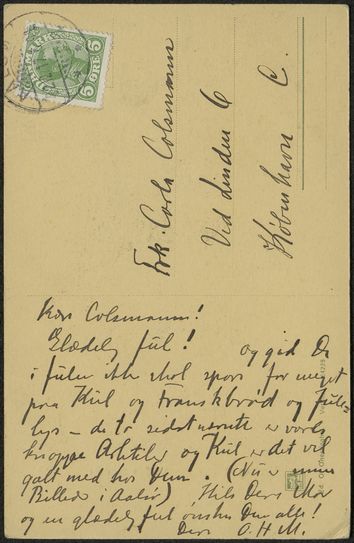 Frk. Carla Colsmann
Ved Linden 6
København C.
Kære Colsmann!
Glædelig Jul! og gid De
i Julen ikke skal spare for meget
paa Kul og Franskbrød og Jule-
lys – de to sidstnævnte er vores
knappe Artikler og Kul er det vel
galt med hos Dem. (Nu er mine
Billeder i Aalso) Hils Deres Mor
og en glædelig Jul ønskes Dem alle!
Deres O. H. M.
5 ØRE 5